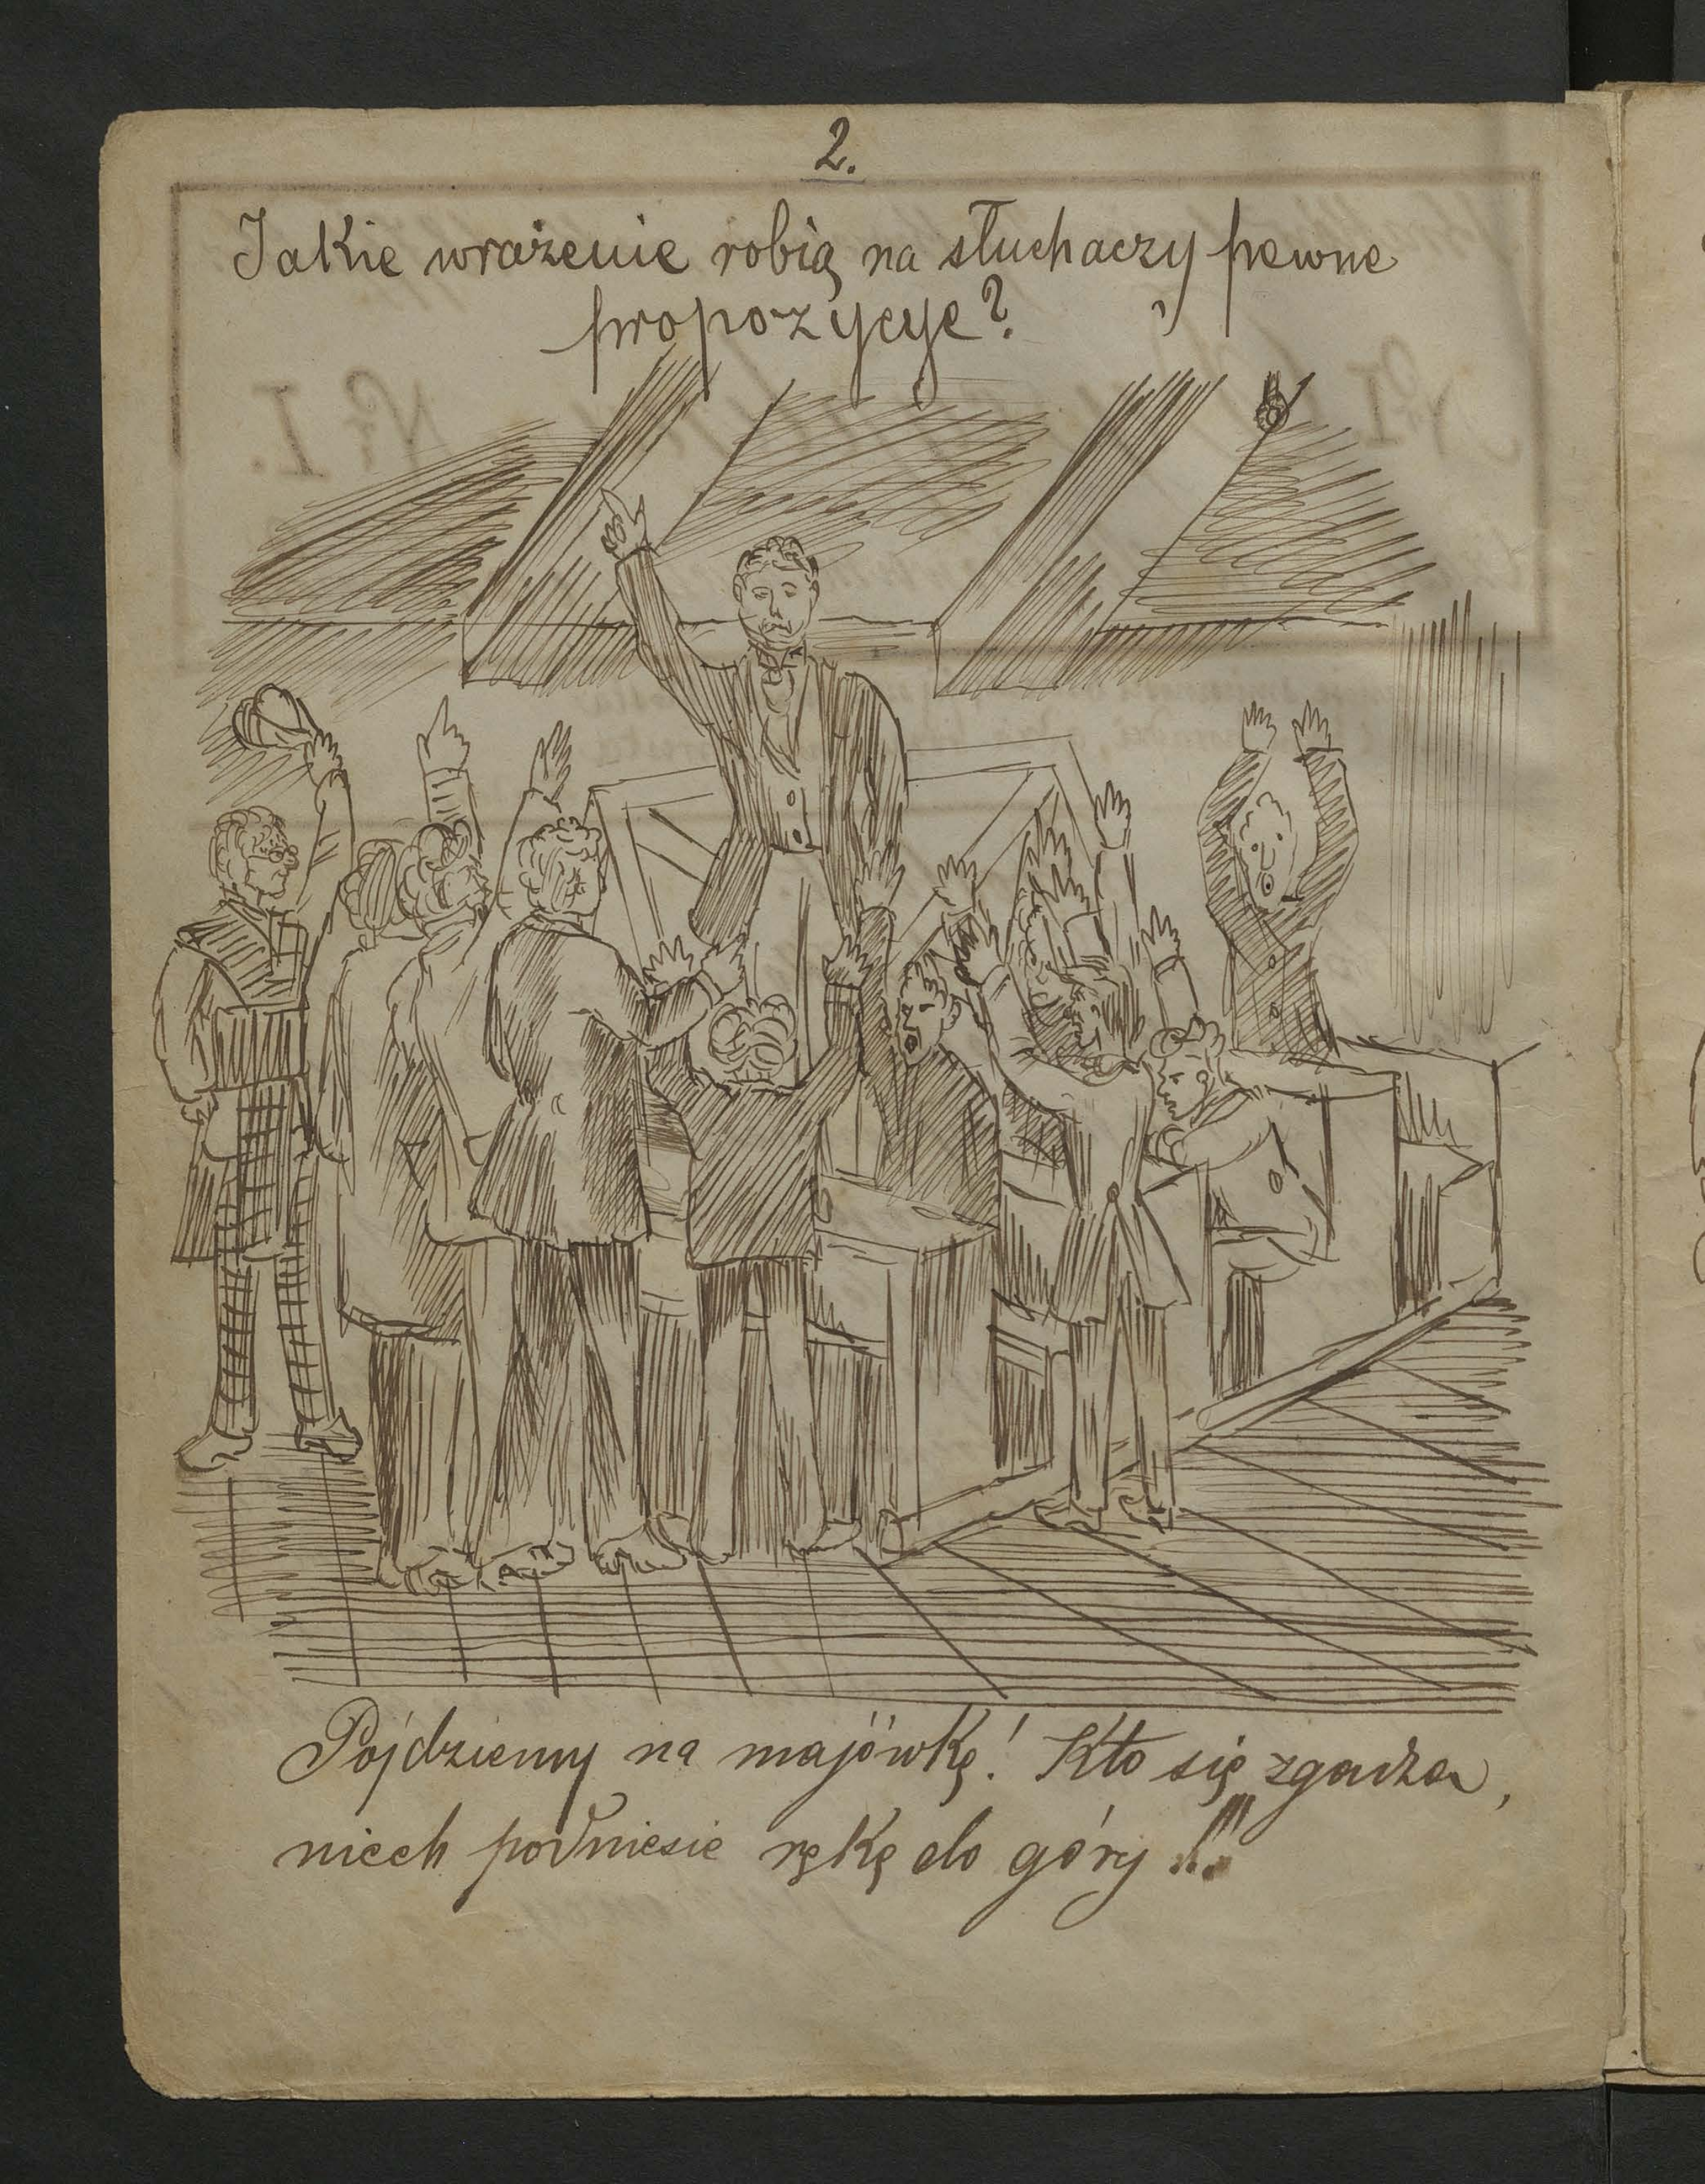 2.
Jakie wrażenie robią na słuchaczy pewne
propozycye?
Nr. I.
Pójdziemy na majówkę! Kto się zgadza,
niech podniesie rękę do góry!!!